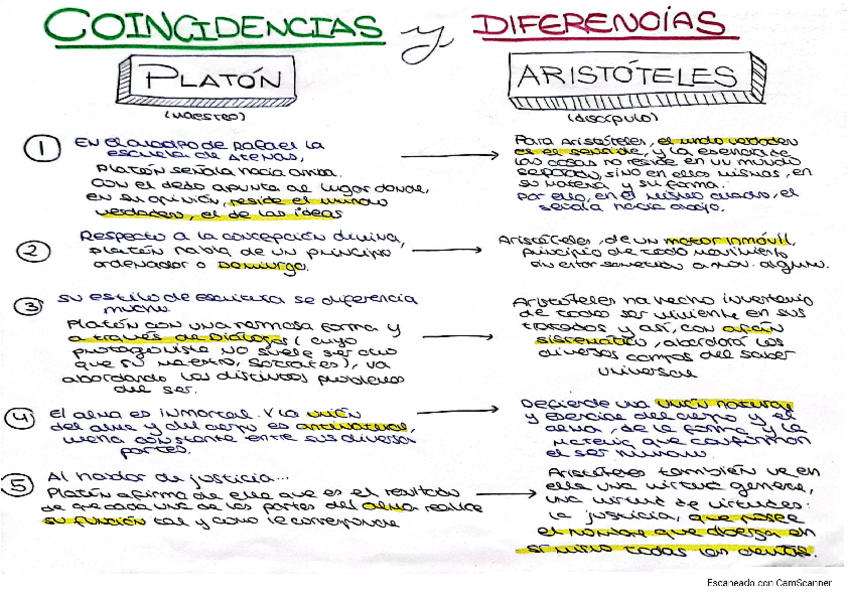 COINCIDENCIAS y DIFERENCIAS
PLATÓN
(MAESTRO)
ARISTÓTELES
(discípulo)
1 En el cuadro de Rafael la
escuela de Atenas,
Platón señala hacia arriba.
Con el dedo apunta al lugar donde,
en su opinión, reside el mundo
verdadero, el de las ideas
Para Aristóteles, el undo verdadero
es el sensible, y la esencia de
las cosas no reside en un mundo
separado, sino en ellas mismas, en
su materia y su forma.
Por ello, en el mismo cuadro, él
señala hacia abajo.
2 Respecto a la concepción divina,
Platón habla de un principio
ordenador o Demiurgo.
Aristóteles, de un motor inmóvil,
principio de todo movimiento
sin estar sometido a mov. alguno.
3 Su estilo de escritura se diferencia
mucho.
Platón con una hermosa forma y
a través de Diálogos (cuyo
protagonista no suele ser otro
que su maestro, Sócrates), va
abordando los distintos problemas
del ser.
Aristóteles ha hecho inventario
de todo ser viviente en sus
tratados y así, con afán
sistemático, abordará los
diversos campos del saber
universal
4 El alma es inmortal. Y la unión
del alma y del cuerpo es antinatural,
lucha constante entre sus diversas
partes.
Defiende una unión natural
y esencial del cuerpo y el
alma, de la forma y la
materia que conforman
el ser humano.
5 Al hablar de justicia...
Platón afirma de ella que es el resultado
de que cada una de las partes del alma realice
su función tal y como le corresponde
Aristóteles también ve en
ella una virtud general,
una virtud de virtudes:
la justicia, que posee
el hombre que alberga en
sí mismo todas las demás.
Escaneado con CamScanner